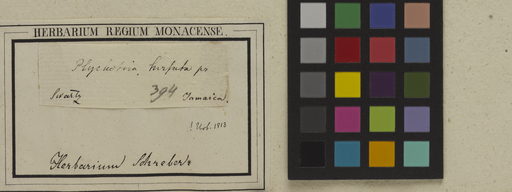 HERBARIUM REGIUM MONACENSE.
Psychotria, hirsuta
Swartz 394 Jamaica.
! Urb. 1913
Herbarium Schreber